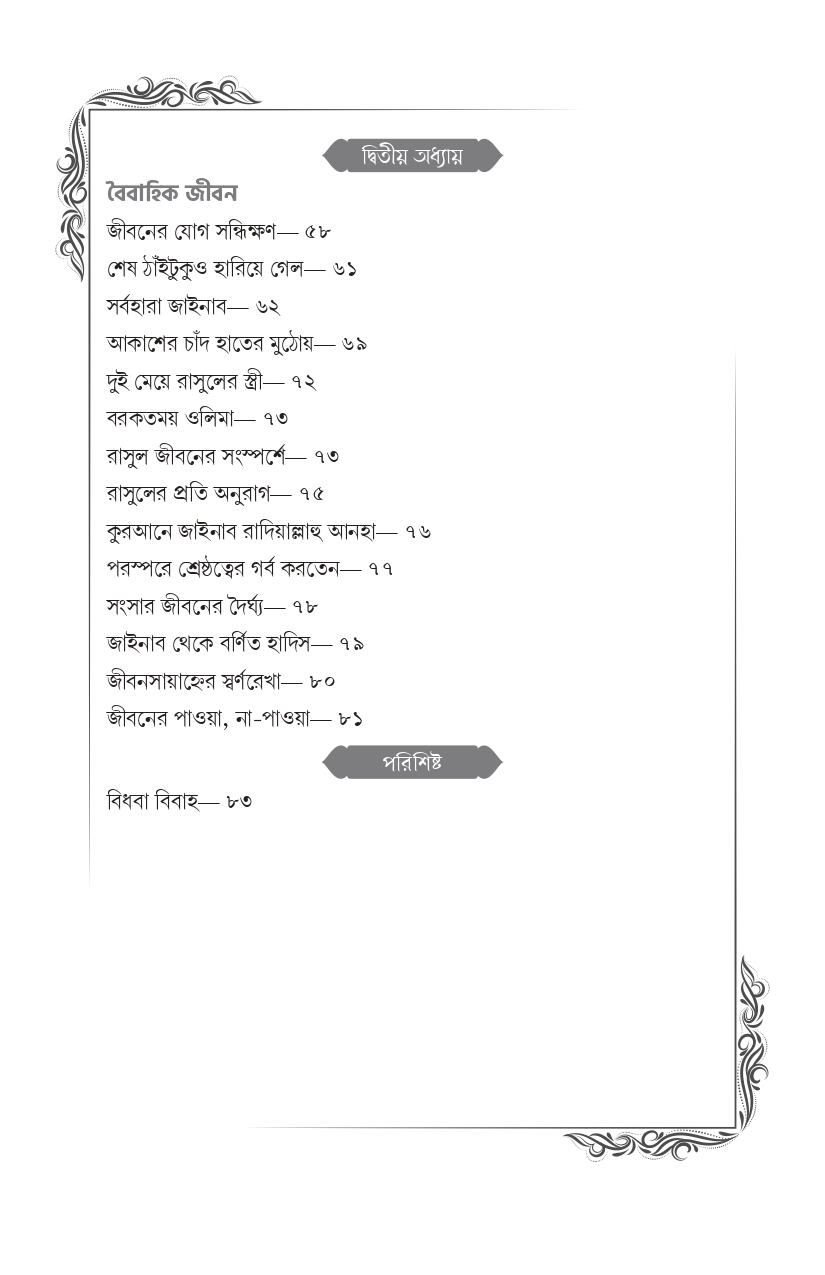 দ্বিতীয় অধ্যায়
বৈবাহিক জীবন
জীবনের যোগ সন্ধিক্ষণ— ৫৮
শেষ ঠাঁইটুকুও হারিয়ে গেল— ৬১
সর্বহারা জাইনাব— ৬২
আকাশের চাঁদ হাতের মুঠোয়— ৬৯
দুই মেয়ে রাসুলের স্ত্রী— ৭২
বরকতময় ওলিমা— ৭৩
রাসুল জীবনের সংস্পর্শে— ৭৩
রাসুলের প্রতি অনুরাগ— ৭৫
কুরআনে জাইনাব রাদিয়াল্লাহু আনহা— ৭৬
পরস্পরে শ্রেষ্ঠত্বের গর্ব করতেন— ৭৭
সংসার জীবনের দৈর্ঘ্য— ৭৮
জাইনাব থেকে বর্ণিত হাদিস— ৭৯
জীবনসায়াহ্নের স্বর্ণরেখা— ৮০
জীবনের পাওয়া, না-পাওয়া— ৮১
পরিশিষ্ট
বিধবা বিবাহ— ৮৩